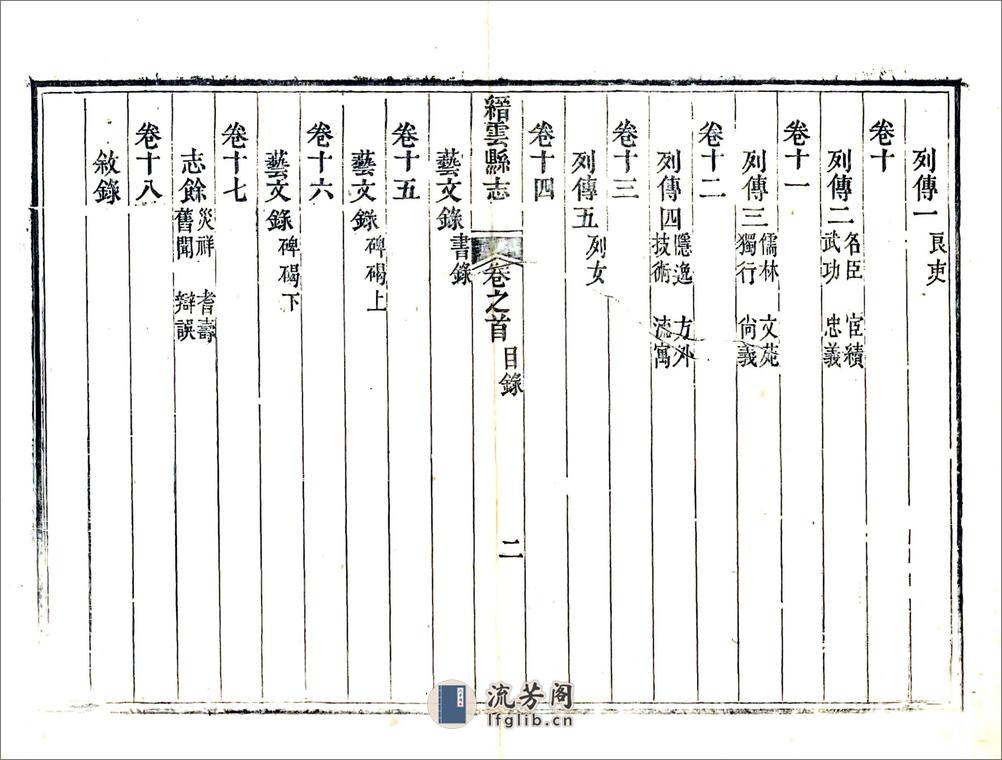 列傳一 良吏
卷十
列傳二 名臣 宦績 武功 忠義
卷十一
列傳三 儒林 文苑 獨行 尚義
卷十二
列傳四 隱逸 方外 技術 流寓
卷十三
列傳五 列女
卷十四
縉雲縣志 卷之首 目錄 二
藝文錄 書錄
卷十五
藝文錄 碑碣上
卷十六
藝文錄 碑碣下
卷十七
志餘 災祥 耆壽 舊聞 辯誤
卷十八
敘錄
流芳阁
lfglib.cn